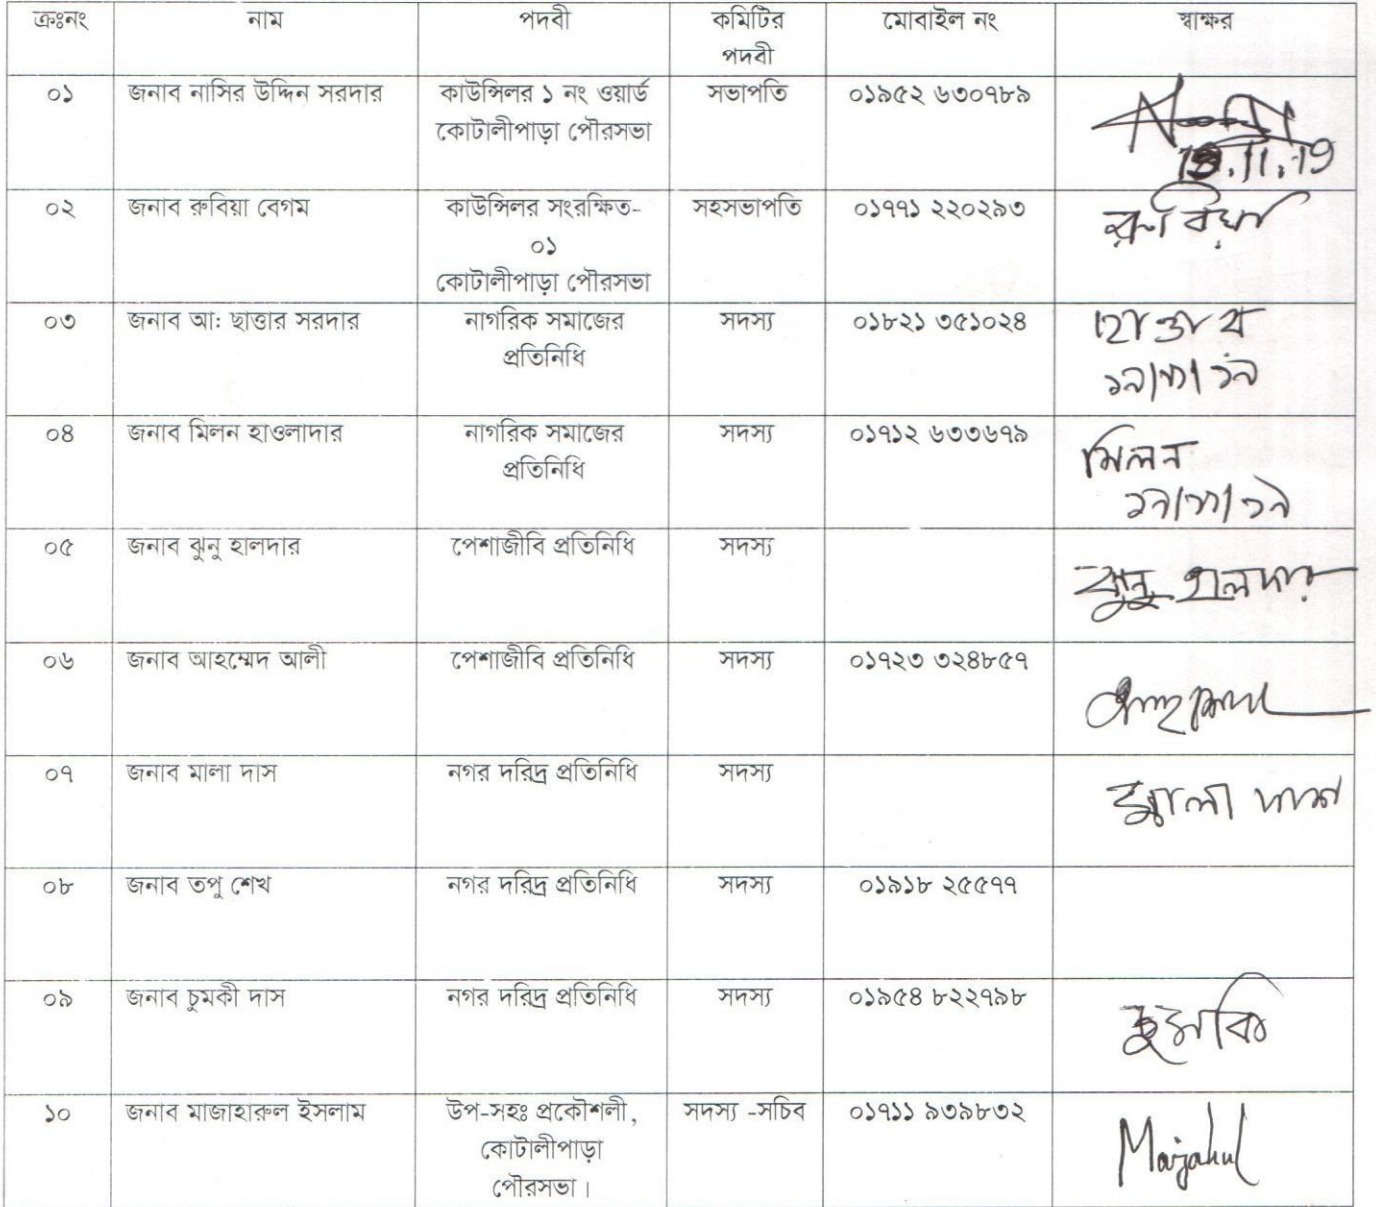 ক্রঃনং নাম পদবী কমিটির পদবী মোবাইল নং স্বাক্ষর
০১ জনাব নাসির উদ্দিন সরদার কাউন্সিলর ১ নং ওয়ার্ড কোটালীপাড়া পৌরসভা সভাপতি ০১৯৫২ ৬৩০৭৮৯ .11.19
০২ জনাব রুবিয়া বেগম কাউন্সিলর সংরক্ষিত-০১ কোটালীপাড়া পৌরসভা সহসভাপতি ০১৭৭১ ২২০২৯৩ রুবিয়া
০৩ জনাব আঃ ছাত্তার সরদার নাগরিক সমাজের প্রতিনিধি সদস্য ০১৮২১ ৩৫১০২৪
০৪ জনাব মিলন হাওলাদার নাগরিক সমাজের প্রতিনিধি সদস্য ০১৭১২ ৬৩৩৬৭৯ মিলন
০৫ জনাব ঝুনু হালদার পেশাজীবি প্রতিনিধি সদস্য ঝুনু হালদার
০৬ জনাব আহম্মেদ আলী পেশাজীবি প্রতিনিধি সদস্য ০১৭২৩ ৩২৪৮৫৭
০৭ জনাব মালা দাস নগর দরিদ্র প্রতিনিধি সদস্য মালা দাস
০৮ জনাব তপু শেখ নগর দরিদ্র প্রতিনিধি সদস্য ০১৯১৮ ২৫৫৭৭
০৯ জনাব চুমকী দাস নগর দরিদ্র প্রতিনিধি সদস্য ০১৯৫৪ ৮২২৭৯৮ চুমকি
১০ জনাব মাজাহারুল ইসলাম উপ-সহঃ প্রকৌশলী, কোটালীপাড়া পৌরসভা। সদস্য -সচিব ০১৭১১ ৯৩৯৮৩২ Majahul